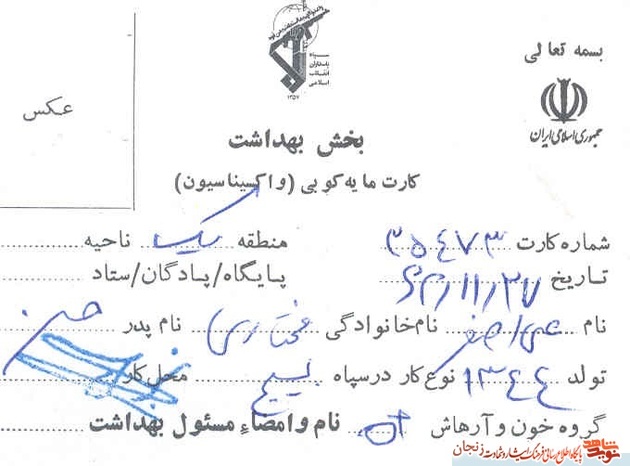 بسمه تعالی
جمهوری اسلامی ایران
سپاه
پاسداران
انقلاب
اسلامی
۱۳۵۷
عکس
بخش بهداشت
کارت مایه کوبی (واکسیناسیون)
شماره کارت ۳۵۴۷۳ منطقه یک ناحیه
تاریخ ۶۳/۱۱/۲۷ پایگاه/پادگان/ستاد
نام علی اصغر نام خانوادگی مختاری نام پدر حسن
تولد ۱۳۴۴ نوع کار در سپاه بسیج محل کار
گروه خون و آرهاش نام و امضاء مسئول بهداشت
نوید شاهد
پایگاه اطلاع رسانی فرهنگ ایثار و شهادت زنجان